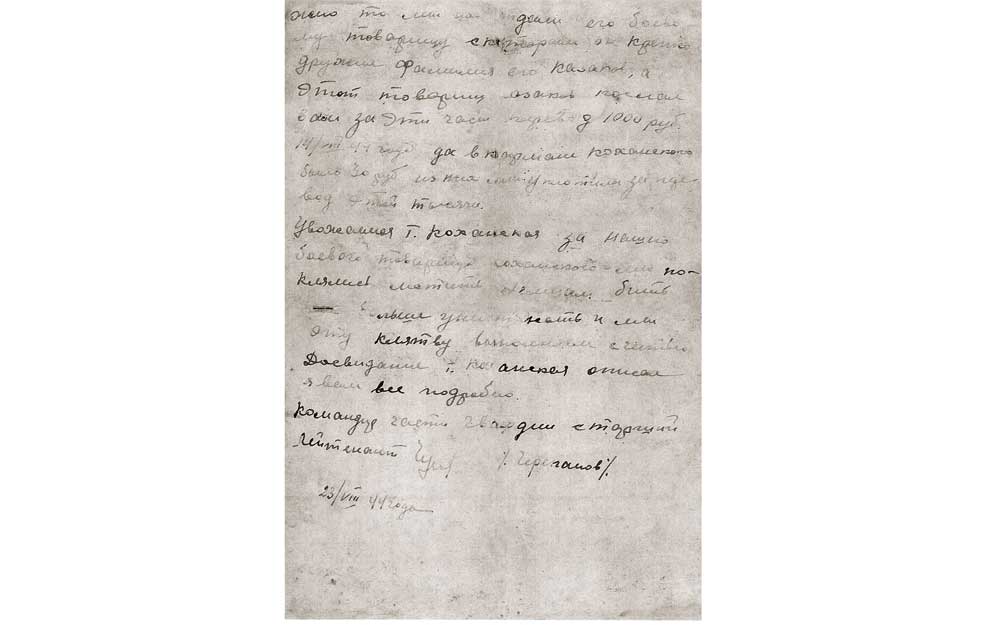 то мы его боево
му товарищу с которым он крепко
дружил фамилия его Казаков, а
Этот товарищ послал
вам за Эти часы перевод 1000 руб.
14/VIII 44 года да в кармане Коханского
было 30 руб из них уплотили за пере
вод Этой тысячи.
Уважаемая т. Коханская за нашего
боевого товарища Коханского мы по-
клялись мстить немцам бить
больше уничтожать и мы
эту клятву выполним с честью
Досвидание т. Коханская описал
я вам все подробно.
Командир части гвардии старший
лейтенант /. Черепанов /.
23/VIII 44 года